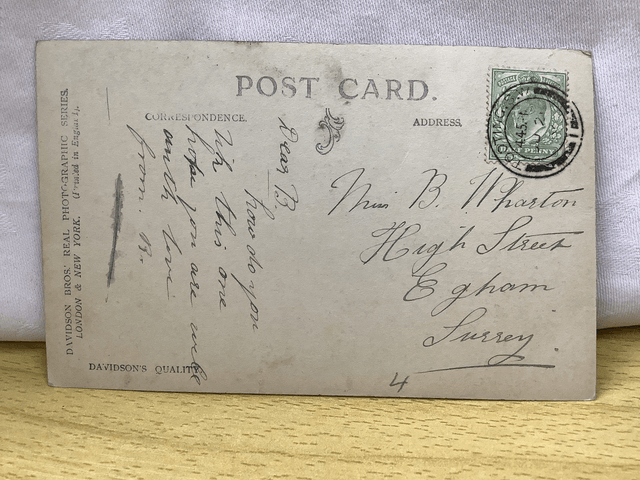 POST CARD.
CORRESPONDENCE.
ADDRESS.
Dear B.
how do you
like this one
hope you are well
with love
from B.
Miss B. Wharton
High Street
Egham
Surrey
4
DAVIDSON BROS.' REAL PHOTOGRAPHIC SERIES.
LONDON & NEW YORK. (Printed in England).
DAVIDSON'S QUALITY